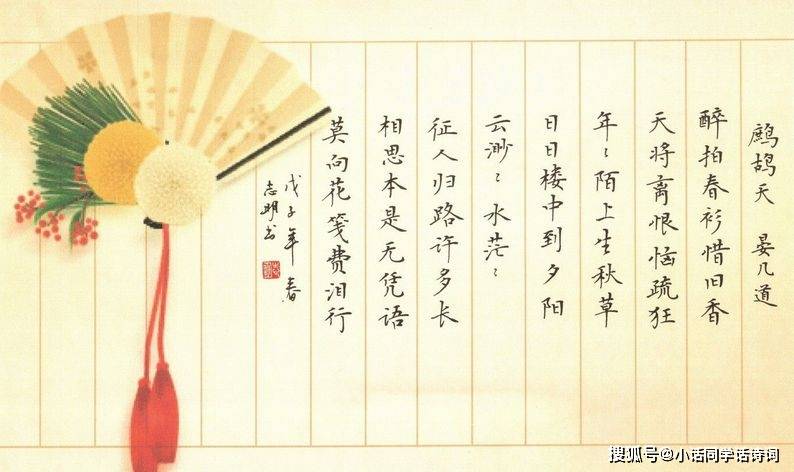 鹧鸪天 晏几道
醉拍春衫惜旧香
天将离恨恼疏狂
年〻陌上生秋草
日日楼中到夕阳
云渺〻水茫〻
征人归路许多长
相思本是无凭语
莫向花笺费泪行
戊子年春
志明书
搜狐号@小话同学话诗词